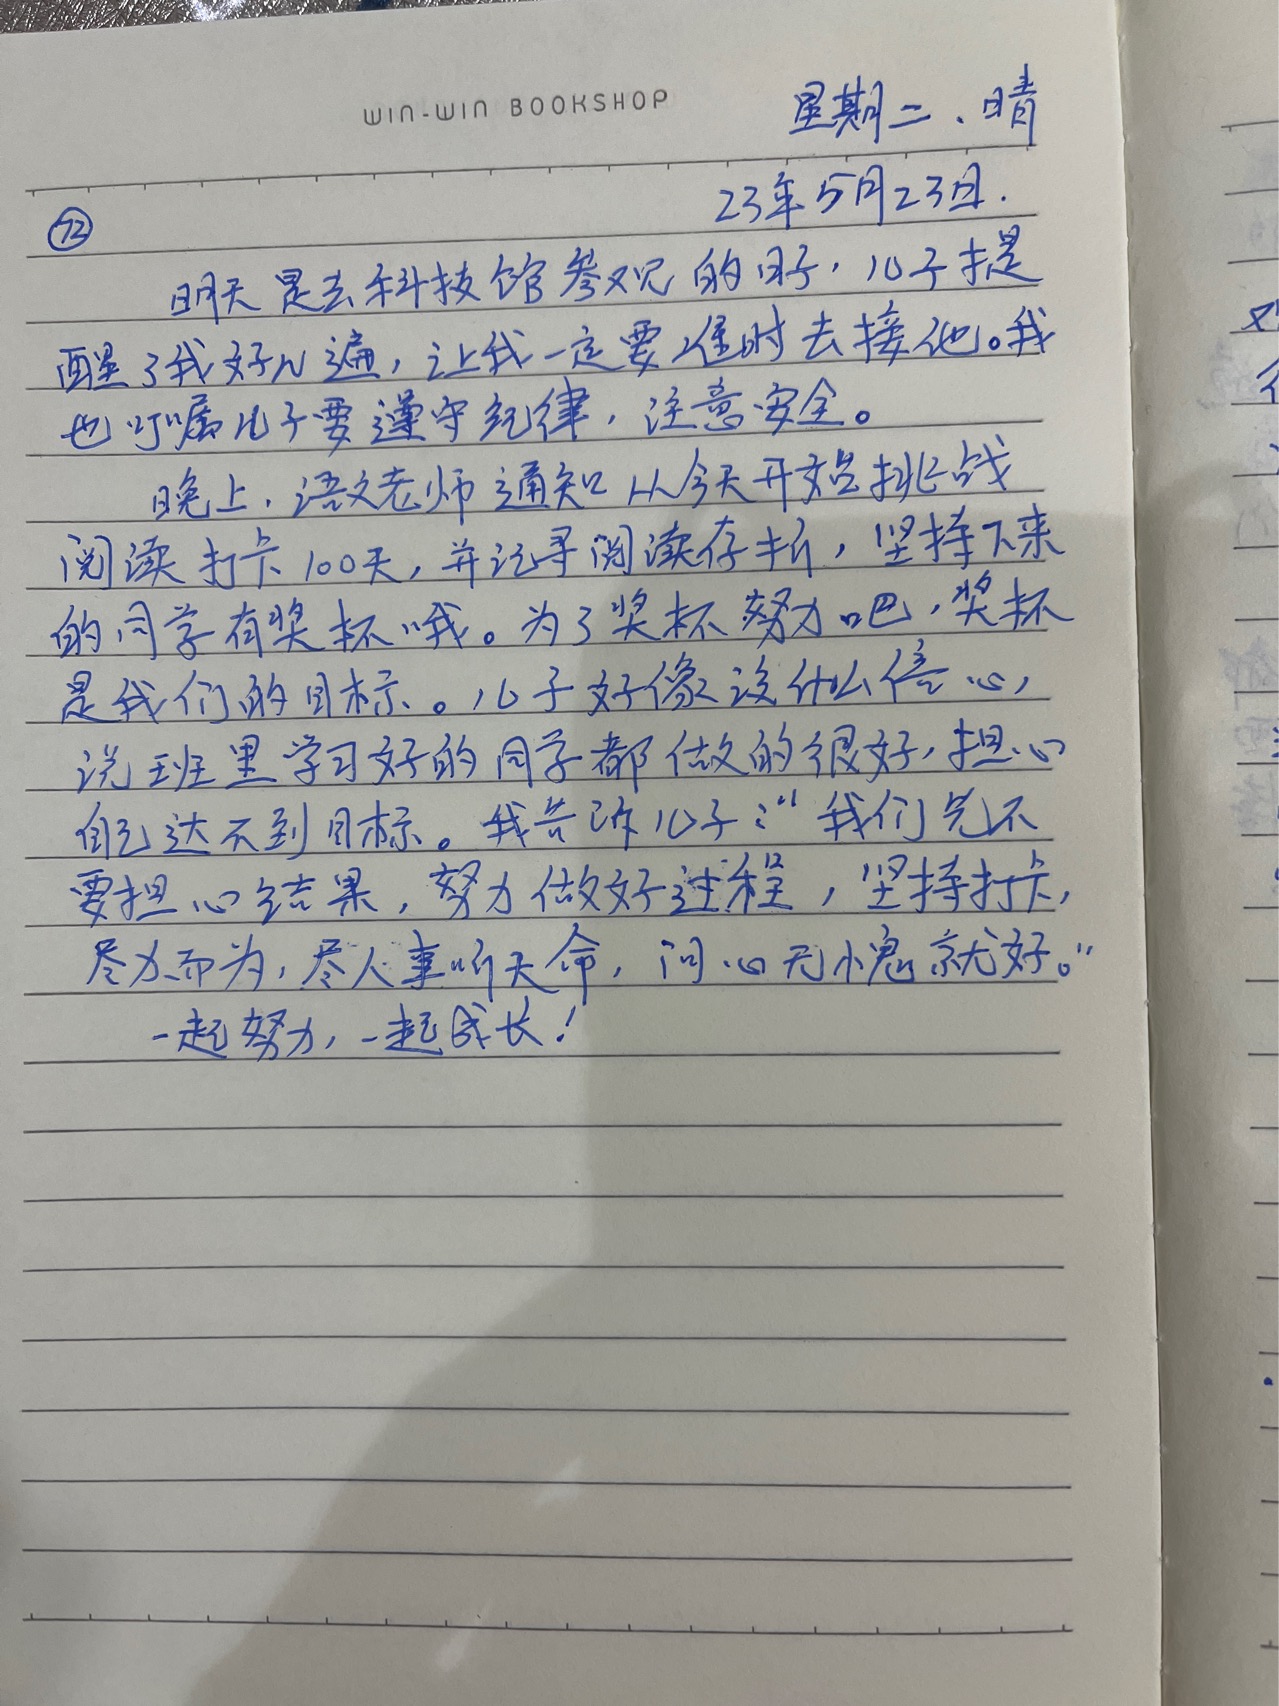 WIN-WIN BOOKSHOP
星期二、晴
23年5月23日.
72
明天是去科技馆参观的日子，儿子提
醒了我好几遍，让我一定要准时去接他。我
也叮嘱儿子要遵守纪律，注意安全。
晚上，语文老师通知从今天开始挑战
阅读打卡100天，并记录阅读存折，坚持下来
的同学有奖杯哦。为了奖杯努力吧，奖杯
是我们的目标。儿子好像没什么信心，
说班里学习好的同学都做的很好，担心
自己达不到目标。我告诉儿子：“我们先不
要担心结果，努力做好过程，坚持打卡，
尽力而为，尽人事听天命，问心无愧就好。”
一起努力，一起成长！